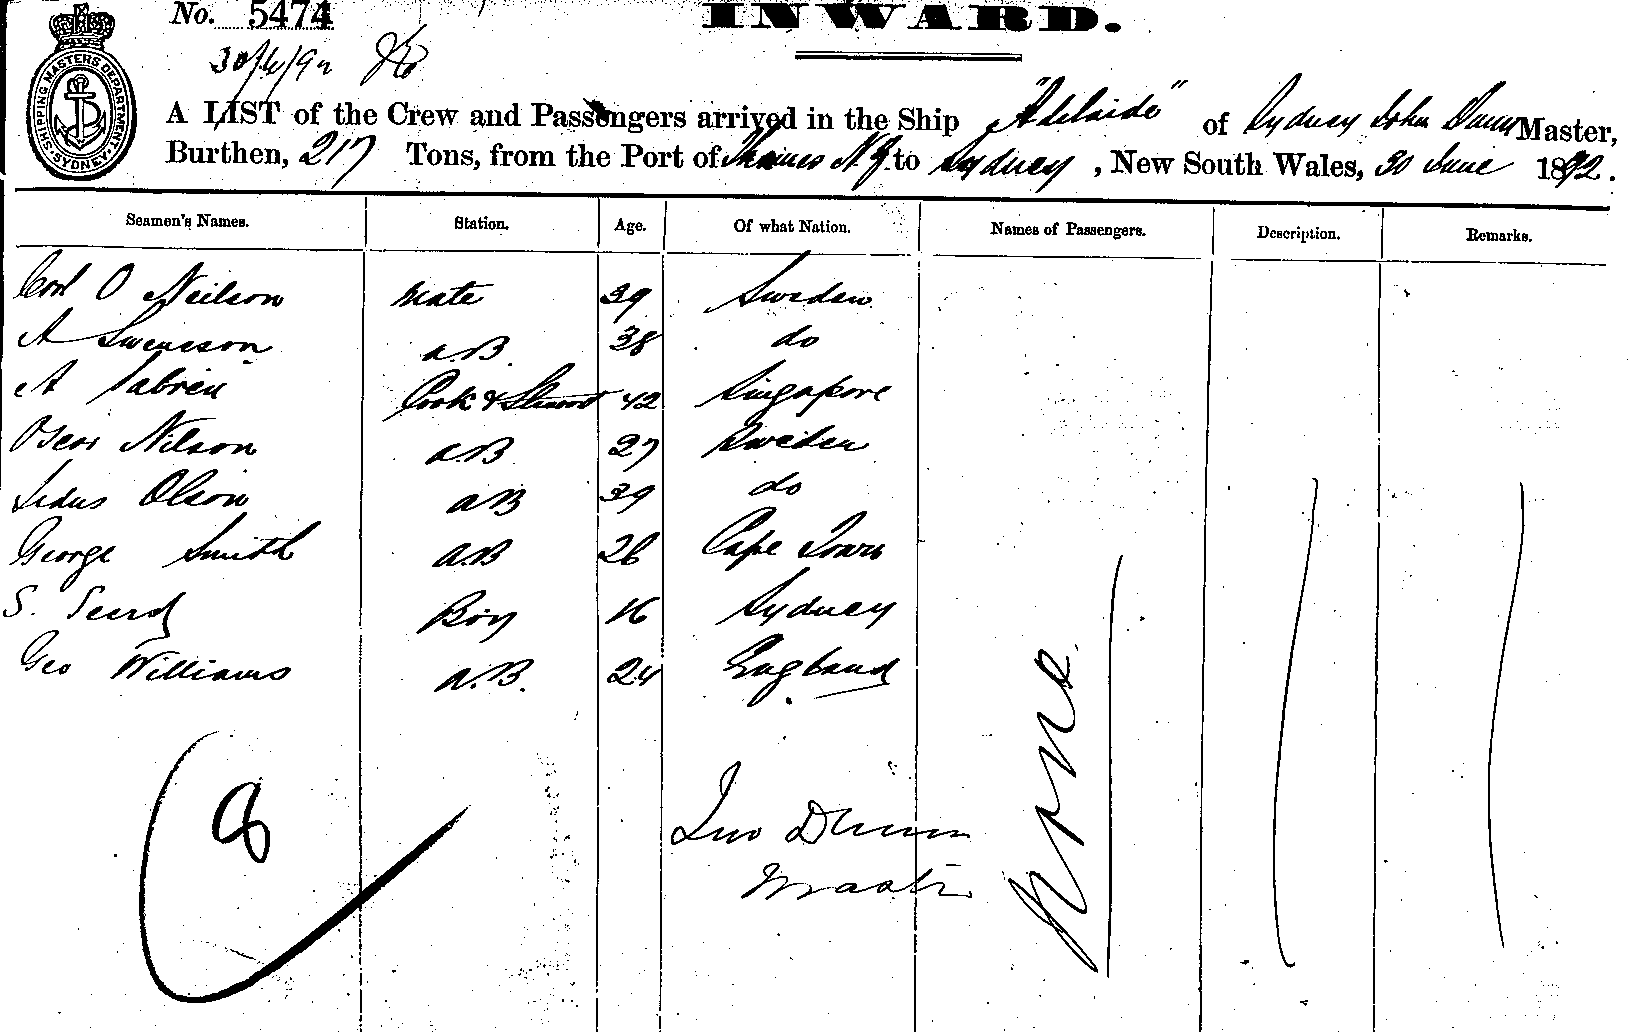 No. 5474
INWARD.
30/6/92
SHIPPING MASTERS DEPARTMENT. SYDNEY
A LIST of the Crew and Passengers arrived in the Ship "Adelaide" of Sydney John Dunn Master,
Burthen, 217 Tons, from the Port of Thames NZ to Sydney, New South Wales, 30 June 1892.
Seamen's Names. Station. Age. Of what Nation. Names of Passengers. Description. Remarks.
Carl O Neilson Mate 39 Sweden
A Swensson a.B. 38 do
A Cook & Steward 42 Singapore
Oscar Nilson a.B 27 Sweden
Olson a.B 39 do
George Smith a.B 26 Cape Town
S. Boy 16 Sydney
Geo Williams a.B. 24 England
None.
8
Jno Dunn
Master